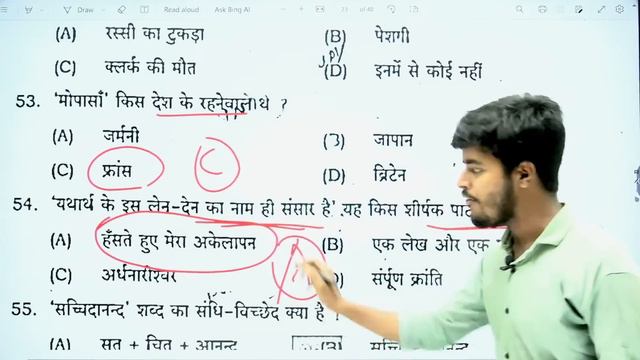 Draw
Read aloud
Ask Bing AI
(A) रस्सी का टुकड़ा (B) पेशगी
(C) क्लर्क की मौत (D) इनमें से कोई नहीं
53. 'मोपासाँ' किस देश के रहनेवाले थे ?
(A) जर्मनी (B) जापान
(C) फ्रांस (D) ब्रिटेन
C
54. 'यथार्थ के इस लेन-देन का नाम ही संसार है' यह किस शीर्षक
(A) हँसते हुए मेरा अकेलापन (B) एक लेख और एक
(C) अर्धनारीश्वर (D) संर्पूण क्रांति
55. 'सच्चिदानन्द' शब्द का संधि-विच्छेद क्या है ?
(A) सत् + चित् + आनन्द (B)